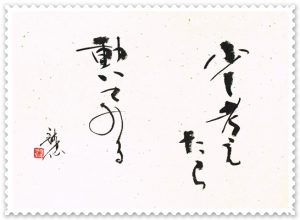 少し考え
たら
動いてみる